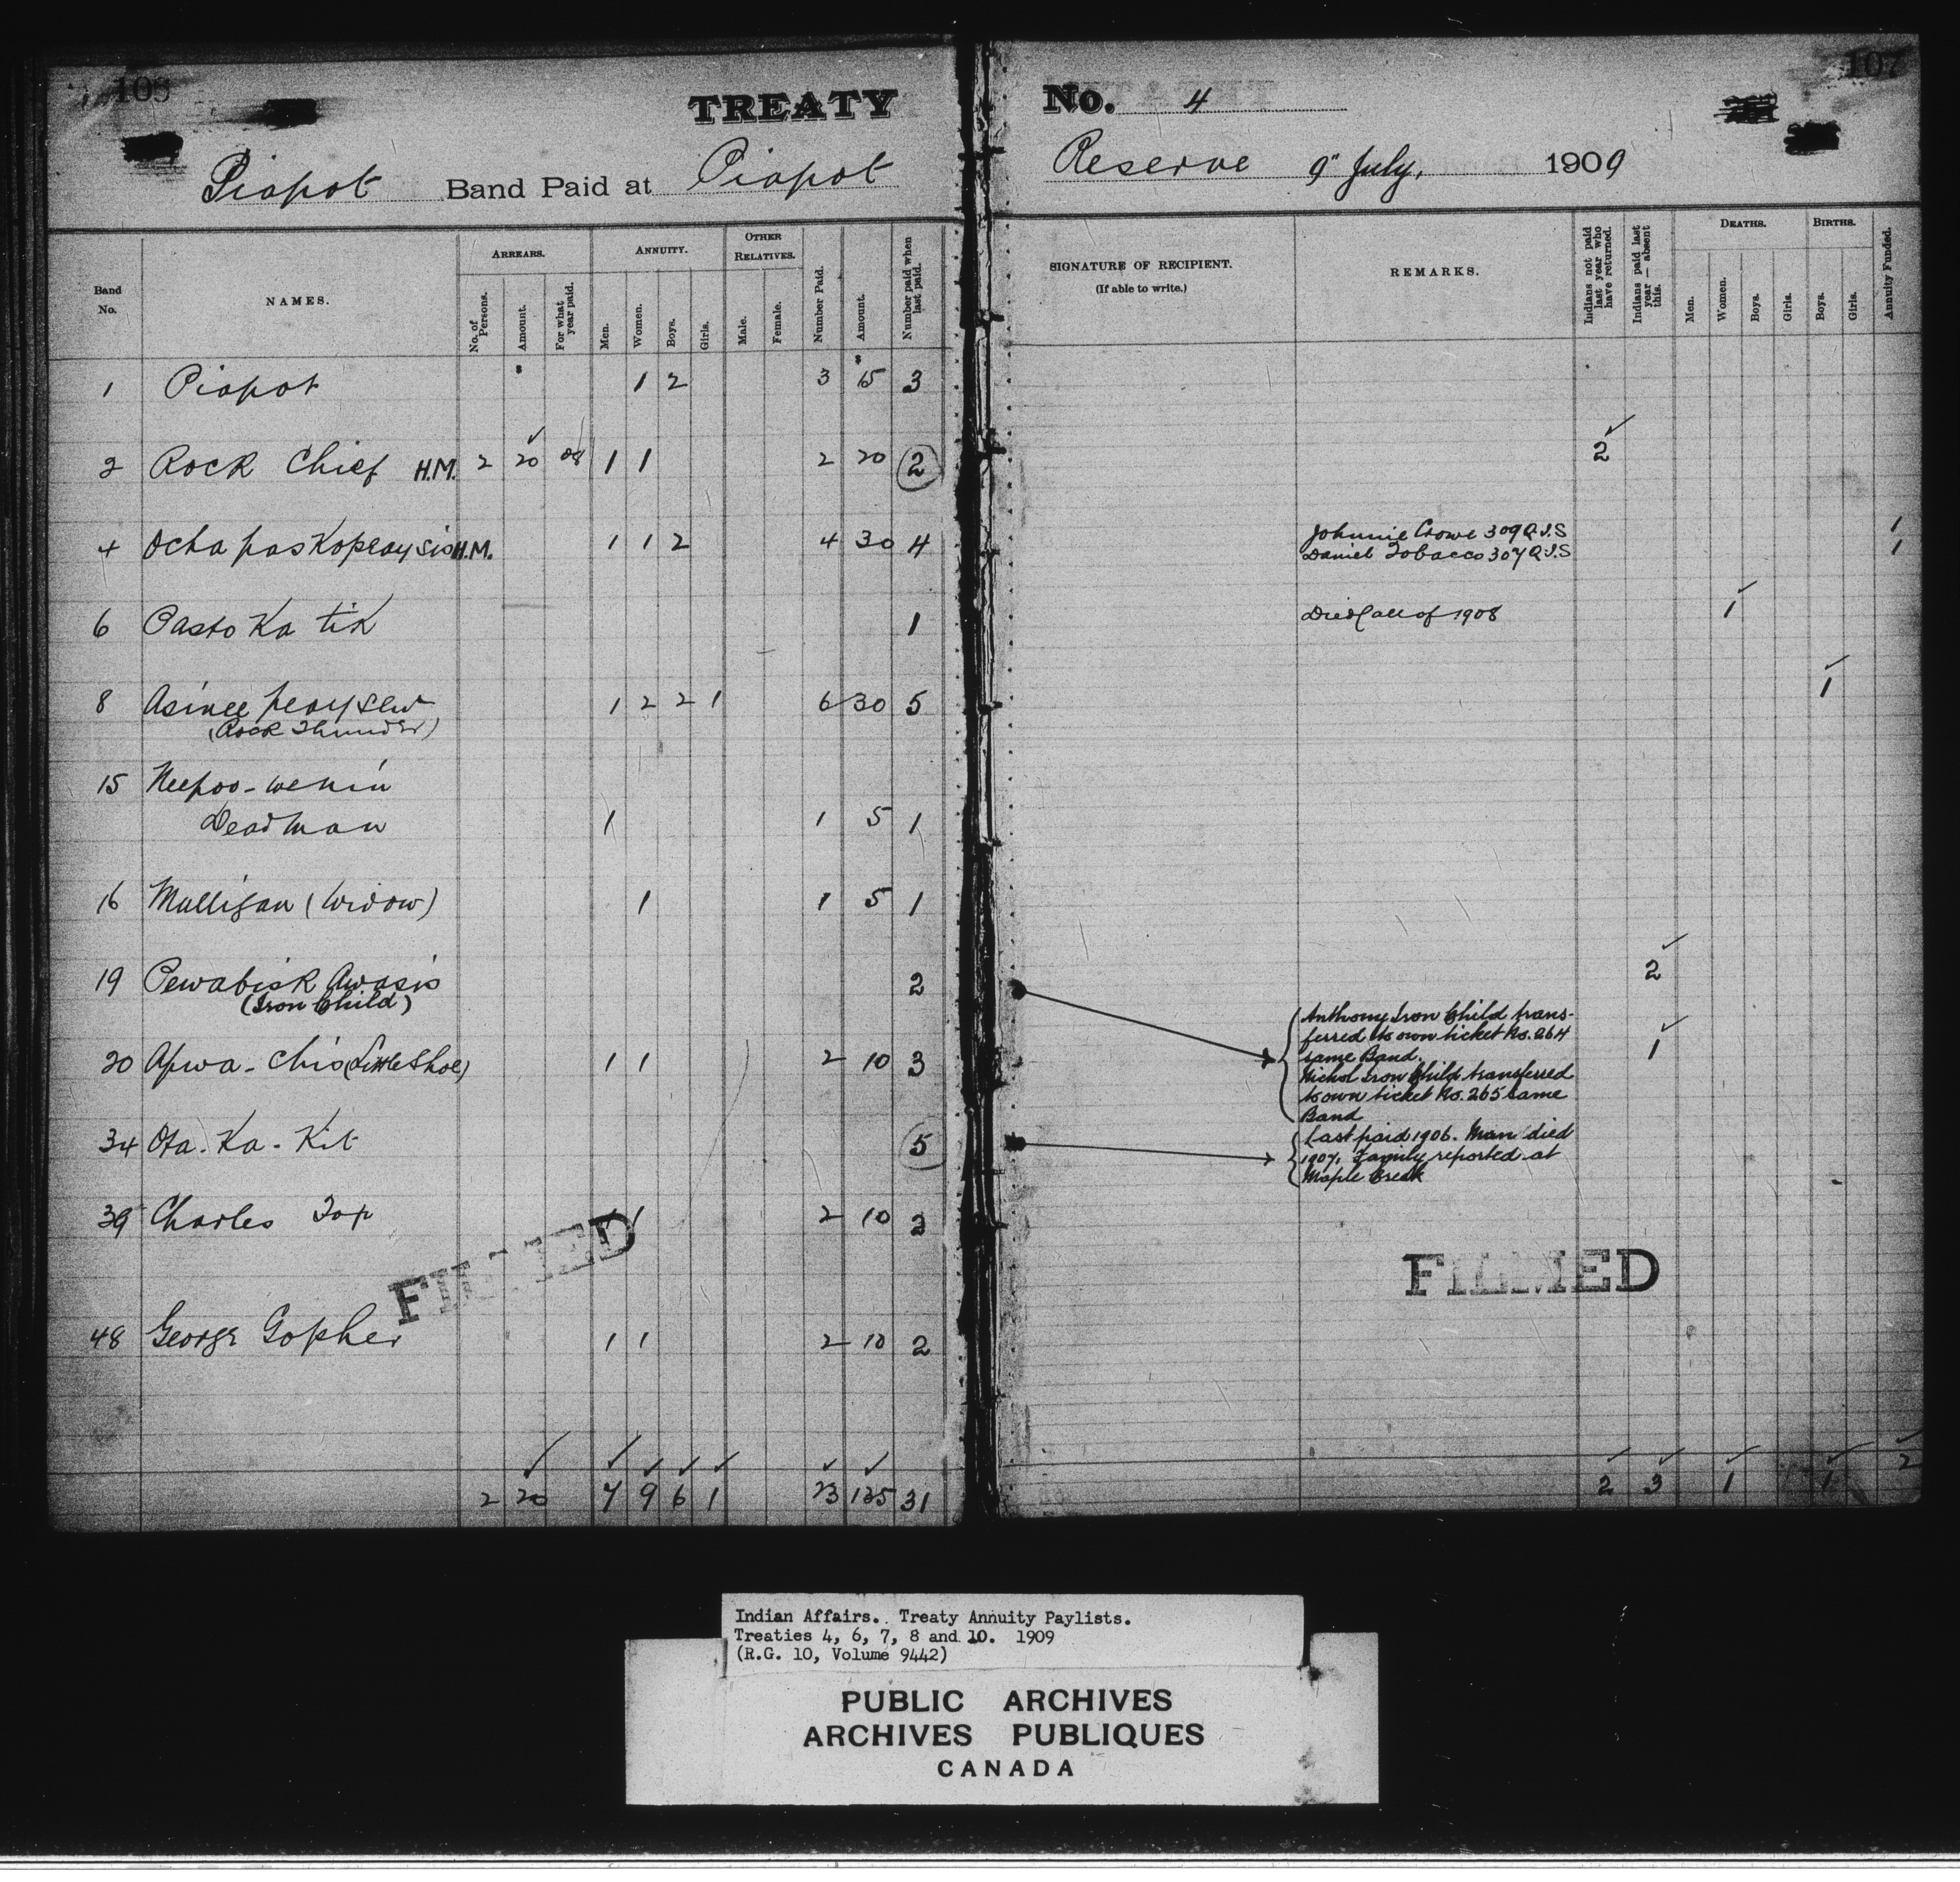 TREATY No. 4
Piapot Band Paid at Piapot Reserve 9" July, 1909
107
Band No.
NAMES.
ARREARS.
No. of Persons.
Amount.
For what year paid.
ANNUITY.
Men.
Women.
Boys.
Girls.
OTHER RELATIVES.
Male.
Female.
Number Paid.
Amount.
Number paid when last paid.
SIGNATURE OF RECIPIENT.
(If able to write.)
REMARKS.
Indians not paid last year who have returned.
Indians paid last year — absent this.
DEATHS.
Men.
Women.
Boys.
Girls.
BIRTHS.
Boys.
Girls.
Annuity Funded.
1 Piapot 1 2 3 15 3
2 Rock Chief H.M. 2 20 08 1 1 2 20 2 2
4 H.M. 1 1 2 4 30 4 Johnnie Crowe 309 Q.I.S 1
Daniel Tobacco 307 Q.I.S 1
6 Pasto Ka tik 1 Died fall of 1908 1
8 Asinee peaysew 1 2 2 1 6 30 5 1
(Rock Thunder)
15 Neepoo-wenin
Deadman 1 1 5 1
16 Mulligan (Widow) 1 1 5 1
19 Pewabisk Awasis 2 2
(Iron Child)
Anthony Iron Child trans-
ferred to own ticket No. 264
same Band.
Nichol Iron Child transferred
to own ticket No. 265 same
Band
20 Apwa-chis (Little Shoe) 1 1 2 10 3 1
34 Ota-Ka-Kit 5 Last paid 1906. Man died
1907. Family reported at
Maple Creek
39 Charles Top 1 1 2 10 2
FILMED
FILMED
48 George Gopher 1 1 2 10 2
2 20 7 9 6 1 23 135 31 2 3 1 1 2
Indian Affairs. Treaty Annuity Paylists.
Treaties 4, 6, 7, 8 and 10. 1909
(R.G. 10, Volume 9442)
PUBLIC ARCHIVES
ARCHIVES PUBLIQUES
CANADA